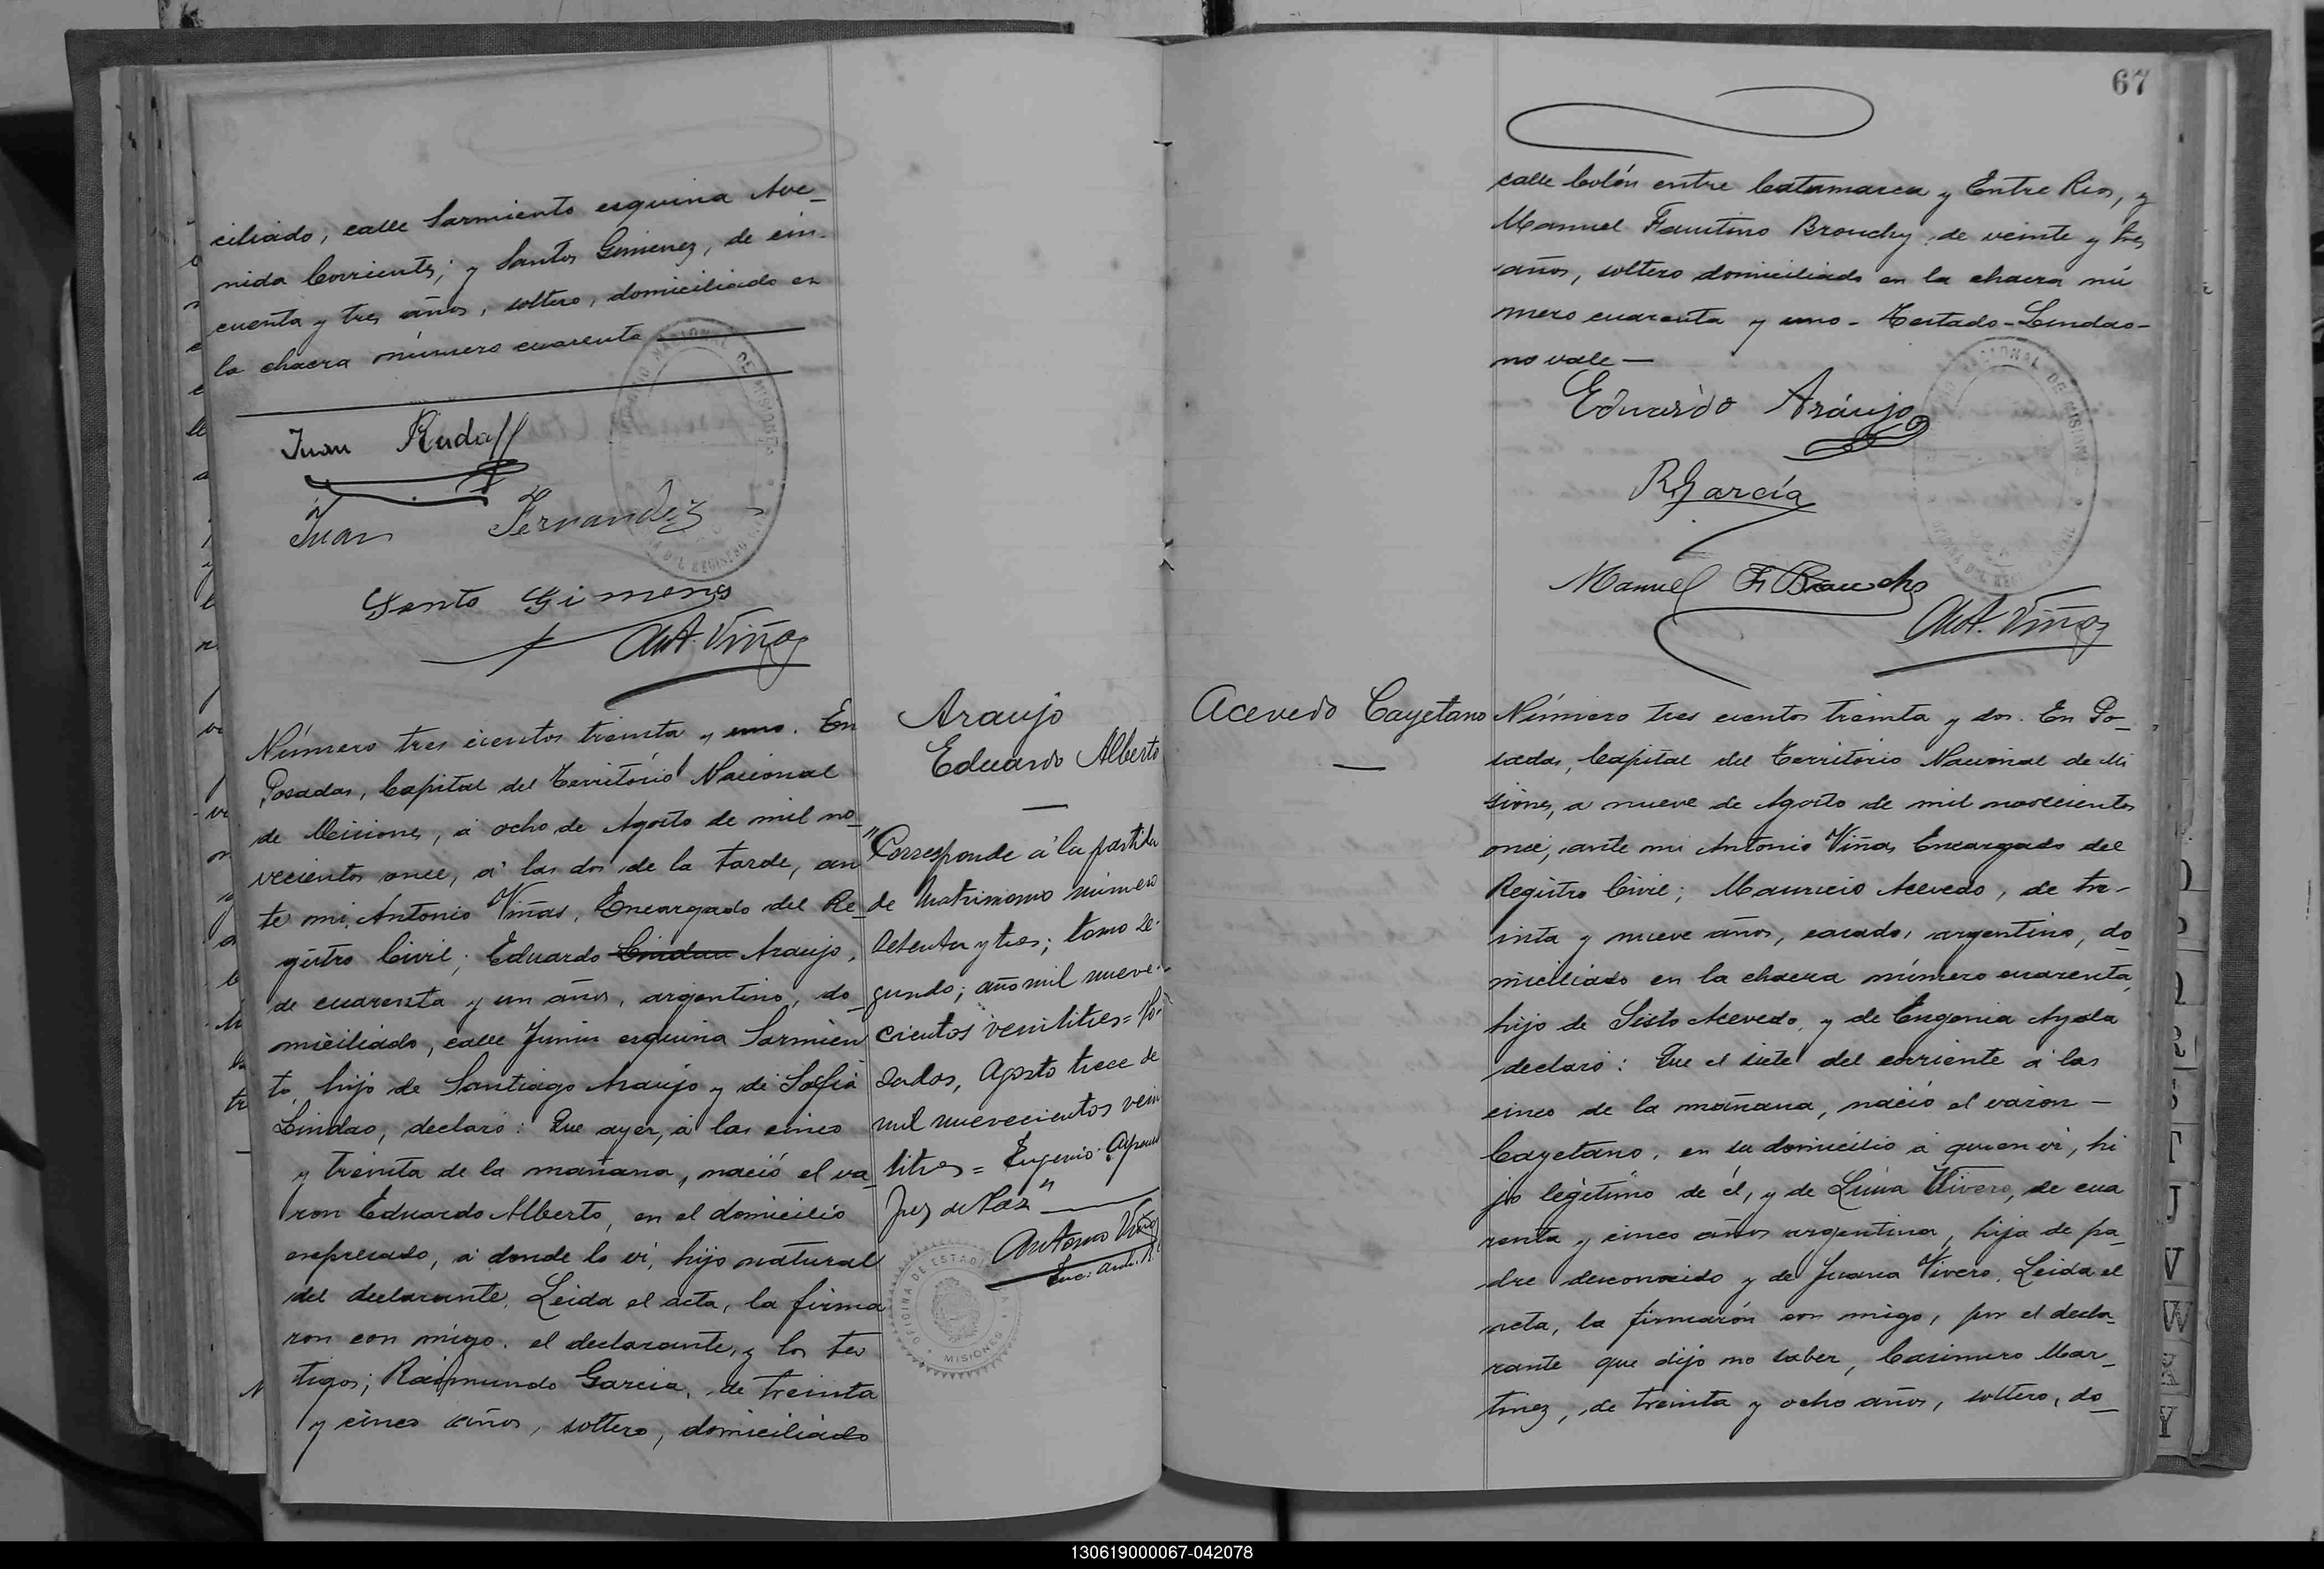 ciliado, calle Sarmiento esquina Ave_
nida Corrientes; y Santos Gimenez, de cin_
cuenta y tres años, soltero, domiciliado en
la chacra número cuarenta
Juan Rudaff
Juan Fernandez
Santo Gimenez
Ant. Viñas
Araujo
Eduardo Alberto
Número tres cientos treinta y uno. En
Posadas, Capital del Territorio Nacional
de Misiones, á ocho de Agosto de mil no_
vecientos once, á las dos de la tarde, an
te mi, Antonio Viñas, Encargado del Re_
gistro Civil; Eduardo Lindau Araujo,
de cuarenta y un años, argentino, do_
miciliado, calle Junin esquina Sarmien
to, hijo de Santiago Araujo y de Sofia
Lindao, declaró: Que ayer, á las cinco
y treinta de la mañana, nació el va_
ron Eduardo Alberto, en el domicilio
expresado, á donde lo vi, hijo natural
del declarante. Leida el acta, la firma
ron con migo. el declarante, y los tes
tigos; Raimundo Garcia, de treinta
y cinco años, soltero, domiciliado
"Corresponde á la partida
de Matrimonio número
setenta y tres; tomo se-
gundo; año mil nueve-
cientos veintitres = Po-
sadas, Agosto trece de
mil nuevecientos vein
titres = Eugenio
Juez de Paz"
Antonio Viñas
OFICINA DE ESTADISTICA
MISIONES
67
calle Colón entre Catamarca y Entre Rios, y
Manuel Faustino Brouchy, de veinte y tres
años, soltero domiciliado en la chacra nú
mero cuarenta y uno - Testado - Lindao -
no vale —
Eduardo Araujo
R Garcia
Manuel F.
Ant. Viñas
Acevedo Cayetano
Número tres cientos treinta y dos. En Po_
sadas, Capital del Territorio Nacional de Mi
siones, a nueve de Agosto de mil novecientos
once, ante mi Antonio Viñas Encargado del
Registro Civil; Mauricio Acevedo, de tre-
inta y nueve años, casado, argentino, do_
miciliado en la chacra número cuarenta,
hijo de Sisto Acevedo, y de Eugenia Ayala
declaró: Que el siete del corriente á las
cinco de la mañana, nació el varon —
Cayetano, en su domicilio á quien vi, hi
jo legitimo de él, y de Lucia Vivero, de cua
renta y cinco años argentina, hija de pa_
dre desconocido y de Juana Vivero. Leida el
acta, la firmarón con migo, por el decla_
rante que dijo no saber, Casimiro Mar_
tinez, de treinta y ocho años, soltero, do_
130619000067-042078